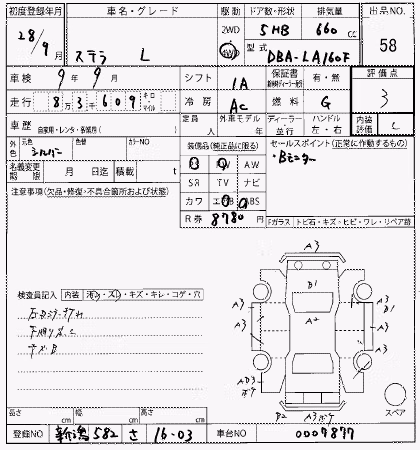 初度登録年月 車名・グレード 駆動 ドア数・形状 排気量 出品NO.
28/9月 ステラ L 2WD 4WD 5HB 660cc 58
型式 DBA-LA160F
車検 9年9月 シフト IA 保証書 有・無 評価点
走行 8万3千609 キロ マイル 冷房 AC 燃料 G 3
車歴 自家用・レンタ・ 定員 人 外車モデル 年 ディーラー 並行 ハンドル 左・右 内装評価 C
外色 元色 シルバー 色替 カラーNO
装備品(純正品に限る) セールスポイント(正常に作動するもの)
PW AW ・Bモニター
名義変更期限 月 日迄 積載 t
SR TV ナビ
注意事項(欠品・修復・不具合箇所および状態)
カワ ABS
R券 8780円
Fガラス トビ石・キズ・ヒビ・ワレ・リペア跡
A3
B1
A3 A3 B1
A2
A3 A3
A3
検査員記入 内装 キズ・キレ・コゲ・穴
下廻りサビC
キズB
AD3
ボケ
B2 A3ボケ
スペア
長さ cm 幅 cm 高さ cm
登録NO 新潟 582 さ 16-03 車台NO 0007877